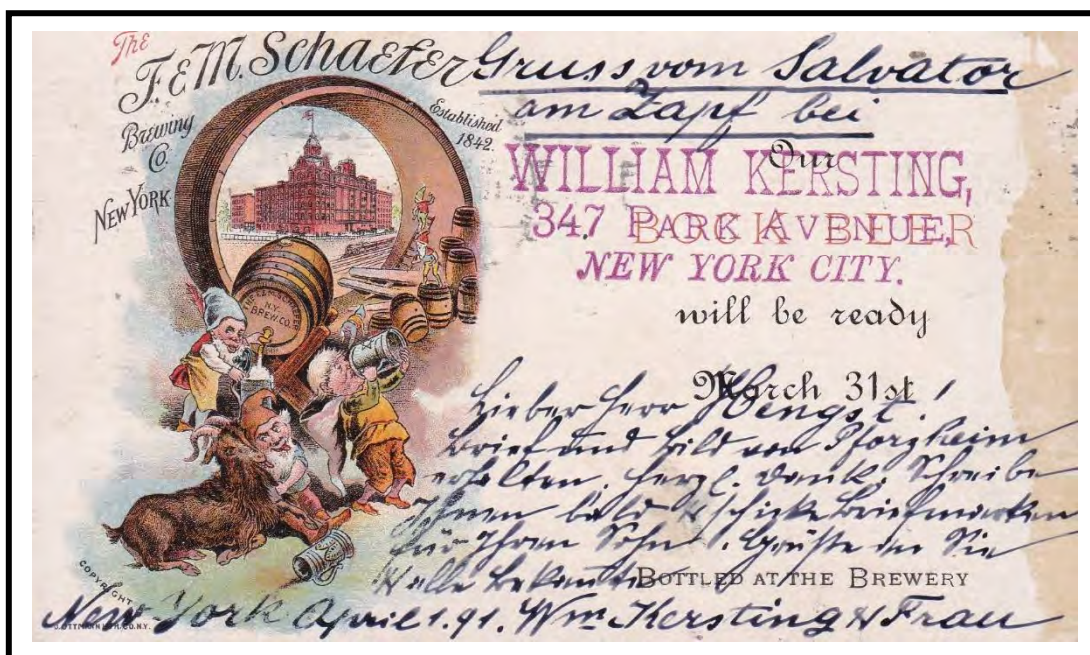 The
F. & M. Schaefer
Brewing
Co.
New York
Established
1842.
Gruss vom Salvator
am Zapf bei
Our
WILLIAM KERSTING,
347 PARK AVENUE,
BOCK BEER
NEW YORK CITY.
will be ready
March 31st
N.Y.
BREW. CO.
Lieber Herr Hengst!
Brief und Bild von Pforzheim
erhalten. Herzl. Dank. Schreibe
Ihnen bald & schicke Briefmarken
für Ihren Sohn. Grüße an Sie
& alle Bekannte
BOTTLED AT THE BREWERY
New York April 1. 91. Wm. Kersting & Frau
COPYRIGHT
CO. N.Y.